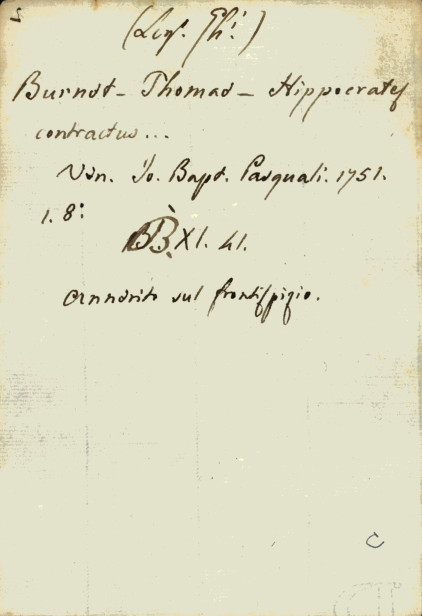 (Leg. Gh.)
Burnet - Thomas - Hippocrates
contractus...
Ven. Jo. Bapt. Pasquali. 1751.
1. 8.°
BB. XI. 41.
annerito sul frontispizio.
C